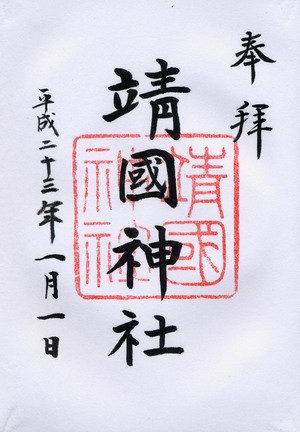 奉拝
靖國神社
靖國神社
平成二十三年一月一日